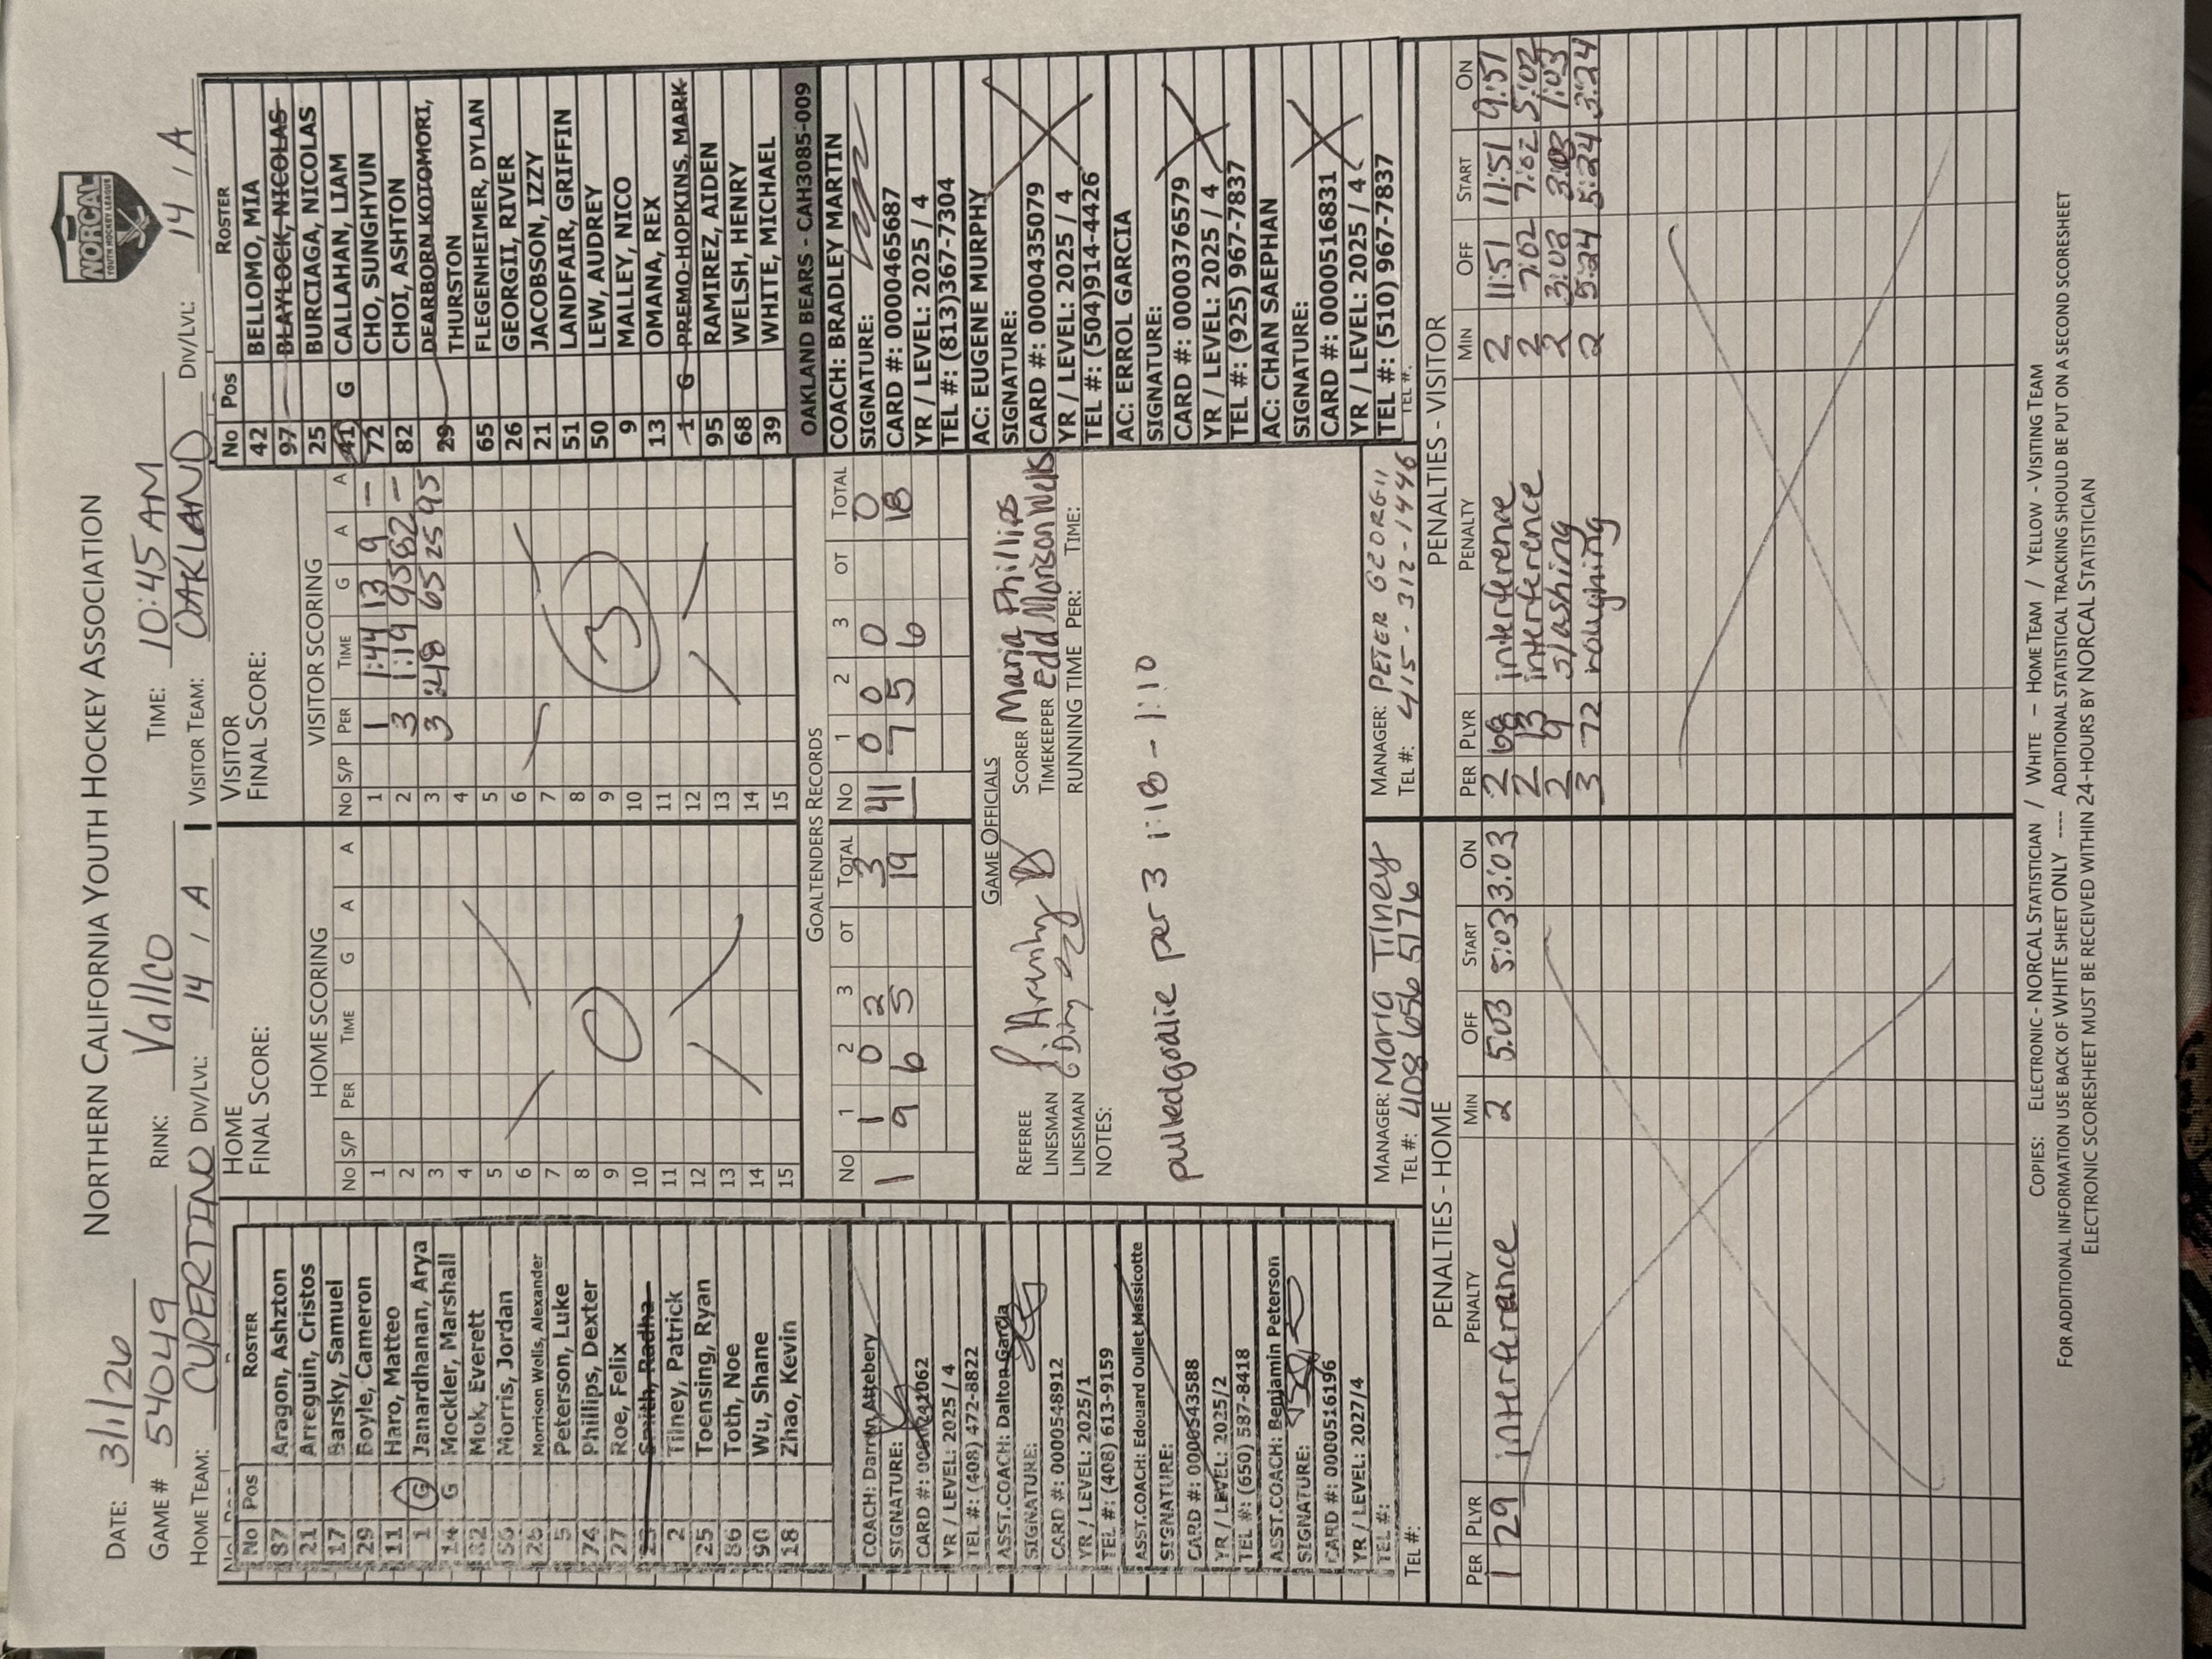 NORTHERN CALIFORNIA YOUTH HOCKEY ASSOCIATION
NORCAL
YOUTH HOCKEY LEAGUE
DATE: 3/1/26
GAME # 54049 RINK: Vallco TIME: 10:45 AM
HOME TEAM: CUPERTINO DIV/LVL: 14 / A VISITOR TEAM: OAKLAND DIV/LVL: 14 / A
No Pos ROSTER
87 Aragon, Ashzton
21 Arreguin, Cristos
17 Barsky, Samuel
29 Boyle, Cameron
11 Haro, Matteo
1 G Janardhanan, Arya
14 G Mockler, Marshall
32 Mok, Everett
56 Morris, Jordan
78 Morrison Wells, Alexander
5 Peterson, Luke
74 Phillips, Dexter
27 Roe, Felix
Smith, Radha
2 Tilney, Patrick
25 Toensing, Ryan
86 Toth, Noe
90 Wu, Shane
18 Zhao, Kevin
COACH: Darren Attebery
SIGNATURE:
CARD #:
YR / LEVEL: 2025 / 4
TEL #: (408) 472-8822
ASST.COACH: Dalton Garcia
SIGNATURE:
CARD #: 0000548912
YR / LEVEL: 2025/1
TEL #: (408) 613-9159
ASST.COACH: Edouard Oullet Massicotte
SIGNATURE:
CARD #: 0000543588
YR / LEVEL: 2025/2
TEL #: (650) 587-8418
ASST.COACH: Benjamin Peterson
SIGNATURE:
CARD #: 0000516196
YR / LEVEL: 2027/4
TEL #:
TEL #:
HOME
FINAL SCORE:
HOME SCORING
No S/P PER TIME G A A
1
2
3
4
5
6
7
8
9
10
11
12
13
14
15
0
VISITOR
FINAL SCORE:
VISITOR SCORING
No S/P PER TIME G A A
1 1 1:44 13 9 —
2 3 1:19 95 82 —
3 3 :48 65 25 95
4
5
6
7
8
9
10
11
12
13
14
15
3
GOALTENDERS RECORDS
No 1 2 3 OT TOTAL No 1 2 3 OT TOTAL
1 1 0 2 3 41 0 0 0 0
9 6 5 19 7 5 6 18
GAME OFFICIALS
REFEREE SCORER Maria Phillips
LINESMAN TIMEKEEPER Edd Morrison Wells
LINESMAN RUNNING TIME PER: TIME:
NOTES:
pulledgoalie per 3 1:18 - 1:10
MANAGER: Maria Tilney MANAGER: PETER GEORGII
TEL #: 408 656 5176 TEL #: 415-312-1446
No Pos ROSTER
42 BELLOMO, MIA
97 BLAYLOCK, NICOLAS
25 BURCIAGA, NICOLAS
41 G CALLAHAN, LIAM
72 CHO, SUNGHYUN
82 CHOI, ASHTON
29 DEARBORN KOTOMORI,
THURSTON
65 FLEGENHEIMER, DYLAN
26 GEORGII, RIVER
21 JACOBSON, IZZY
51 LANDFAIR, GRIFFIN
50 LEW, AUDREY
9 MALLEY, NICO
13 OMANA, REX
1 G PREMO-HOPKINS, MARK
95 RAMIREZ, AIDEN
68 WELSH, HENRY
39 WHITE, MICHAEL
OAKLAND BEARS - CAH3085-009
COACH: BRADLEY MARTIN
SIGNATURE:
CARD #: 0000465687
YR / LEVEL: 2025 / 4
TEL #: (813)367-7304
AC: EUGENE MURPHY
SIGNATURE:
CARD #: 0000435079
YR / LEVEL: 2025 / 4
TEL #: (504)914-4426
AC: ERROL GARCIA
SIGNATURE:
CARD #: 0000376579
YR / LEVEL: 2025 / 4
TEL #: (925) 967-7837
AC: CHAN SAEPHAN
SIGNATURE:
CARD #: 0000516831
YR / LEVEL: 2025 / 4
TEL #: (510) 967-7837
TEL #:
PENALTIES - HOME
PER PLYR PENALTY MIN OFF START ON
1 29 interferance 2 5:03 5:03 3:03
PENALTIES - VISITOR
PER PLYR PENALTY MIN OFF START ON
2 68 interference 2 11:51 11:51 9:51
2 13 interference 2 7:02 7:02 5:02
2 9 slashing 2 3:03 3:03 1:03
3 72 roughing 2 5:24 5:24 3:24
COPIES: ELECTRONIC - NORCAL STATISTICIAN / WHITE – HOME TEAM / YELLOW - VISITING TEAM
FOR ADDITIONAL INFORMATION USE BACK OF WHITE SHEET ONLY ---- ADDITIONAL STATISTICAL TRACKING SHOULD BE PUT ON A SECOND SCORESHEET
ELECTRONIC SCORESHEET MUST BE RECEIVED WITHIN 24-HOURS BY NORCAL STATISTICIAN